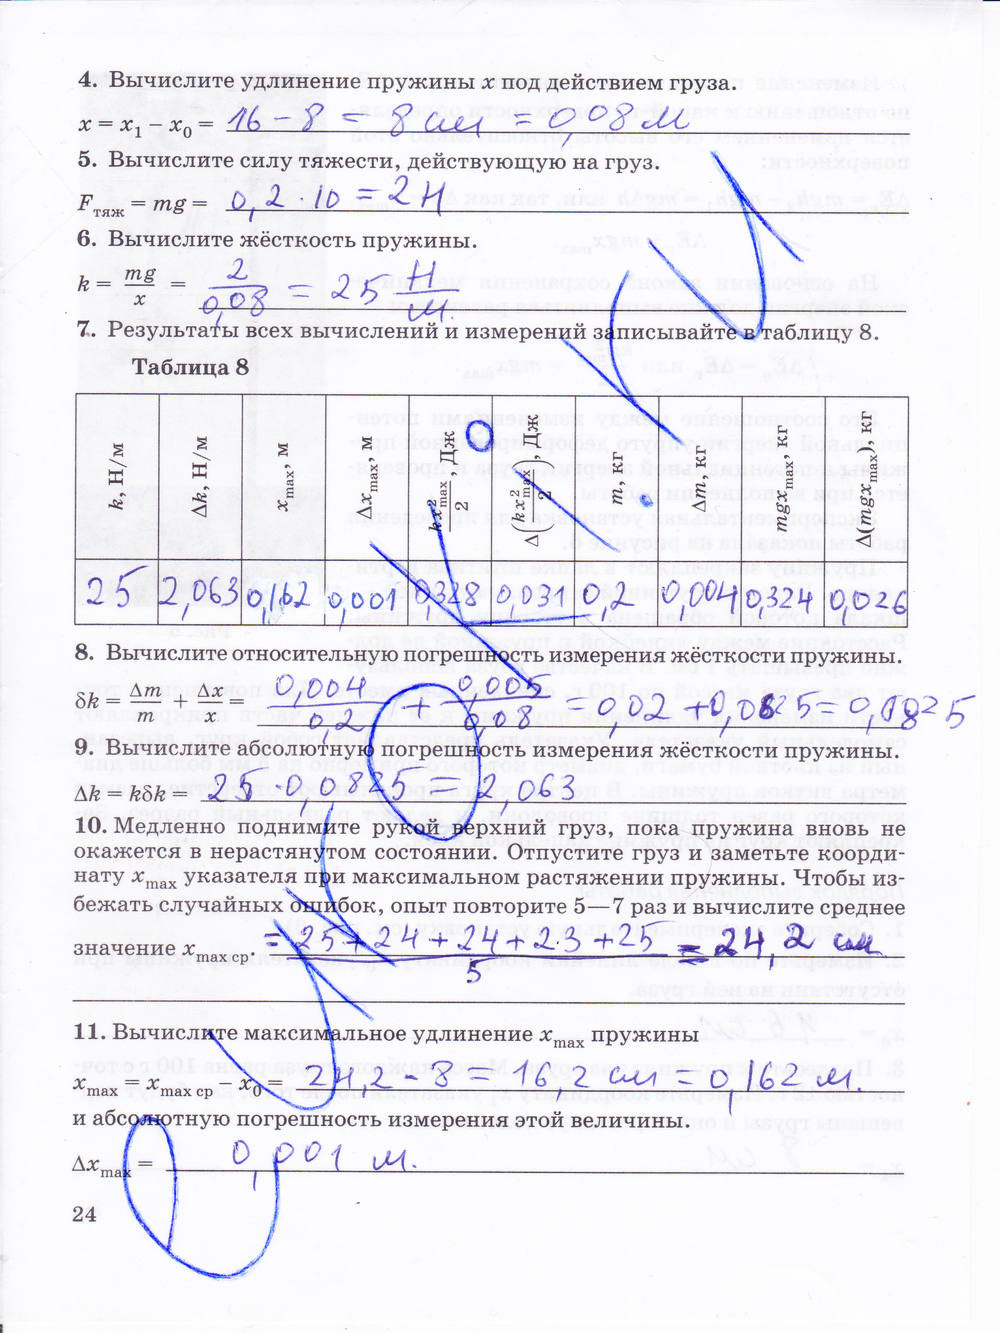 4. Вычислите удлинение пружины x под действием груза.
x = x₁ – x₀ 16 – 8 = 8 см = 0,08 м
5. Вычислите силу тяжести, действующую на груз.
Fтяж = mg = 0,2 · 10 = 2 Н
6. Вычислите жёсткость пружины.
k = mg/x = 2/0,08 = 25 Н/м.
7. Результаты всех вычислений и измерений записывайте в таблицу 8.
Таблица 8
k, Н/м | Δk, Н/м | xmax, м | Δxmax, м | kx²max/2, Дж | Δ(kx²max/2), Дж | m, кг | Δm, кг | mgxmax, кг | Δ(mgxmax) кг
25 | 2,063 | 0,162 | 0,001 | 0,328 | 0,031 | 0,2 | 0,004 | 0,324 | 0,026
8. Вычислите относительную погрешность измерения жёсткости пружины.
δk = Δm/m + Δx/x = 0,004/0,2 + 0,005/0,08 = 0,02 + 0,0625 = 0,0825
9. Вычислите абсолютную погрешность измерения жёсткости пружины.
Δk = kδk = 25 · 0,0825 = 2,063
10. Медленно поднимите рукой верхний груз, пока пружина вновь не
окажется в нерастянутом состоянии. Отпустите груз и заметьте коорди-
нату xmax указателя при максимальном растяжении пружины. Чтобы из-
бежать случайных ошибок, опыт повторите 5—7 раз и вычислите среднее
значение xmax ср. = 25 + 24 + 24 + 2 3 + 25 / 5 = 24,2 см
11. Вычислите максимальное удлинение xmax пружины
xmax = xmax ср – x₀ = 24,2 – 8 = 16 2 см = 0,162 м.
и абсолютную погрешность измерения этой величины.
Δxmax = 0,001 м.
24